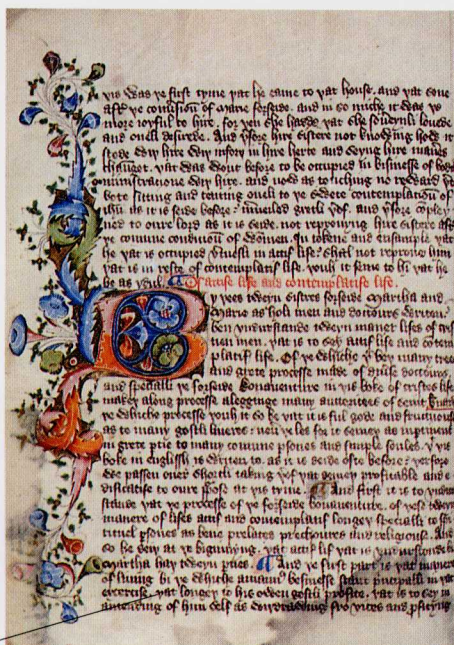 þis was þe first tyme þat he came to þat house. and þat sone
aftr þe conusion of Marie forseide. and in so miche it was þe
more ioyful to hire. for þen she hadde þat she souereynli louede
and onell desirede. And þfore hire sistere not knowyng how it
stode wiþ hire inforþ in hire herte and seyng hire maner
chaunget. þat was wont before to be occupied in bisinesse of
ministracione wiþ hire. and now as to þing no reward
bote sitting and tenting oneli to þe contemplation of
ihu as it is seide before. merueiled gretli þof. and þfore
ned to oure lord as it is seide. not repreuyng hire sistere aftr
þe comune condicion of women. In tokene and ensample þat
he þat is occupied in actif life shal not repreue him
þat is in reste of contemplatif life. þouh it seme to hi þat he
be as ydul. Of actife life and contemplatife life.
By þees tweyn sistres forseide Martha and
Marie as holi men and doctoures writen
ben vndurstande tweyn maner lifes of cris
ten men. þat is to sey actif life and contem
platif life. Of þe whiche þ ben many tretes
and grete processe made of diuse doctours.
and specialli þe forseide Bonauenture in þis boke of cristes life
makeþ a long processe alegginge many auctoritees of seint
þe whiche processe þouh it so be þat it is ful gode and fructuous
as to many gostli liueres: neuþeles for it semeþ as inptinent
in grete ptie to many comune psones and simple soules. þ þis
boke in englissh is writen to. as it is seide ofte before: þerfore
we passen ouer shortli taking þof þat semeþ profitable and
edificatife to oure ppose at þis tyme. And first it is to vndur
stande þat þe processe of þe forseide bonauenture. of þese tweyn
manere of lifes actif and contemplatif longeþ specialli to spi
rituel psones as bene prelates prechoures and religiouse. And
so he seiþ at þe bigynnyng. þat actif lif þat is vndurstonde b
Martha haþ tweyn pties. And þe first part is þat manere
of liuing bi þe whiche a mannus besinesse stant principalli in þat
exercise. þat longeþ to his owen gostli profite. þat is to sey in
amending of him self as wiþdrawing fro vices and pfityng